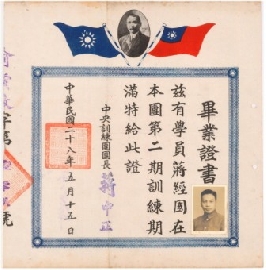 畢業證書
茲有學員蔣經國在
本團第二期訓練期
滿特給此證
中央訓練團團長 蔣中正
中華民國二十八年五月十五日